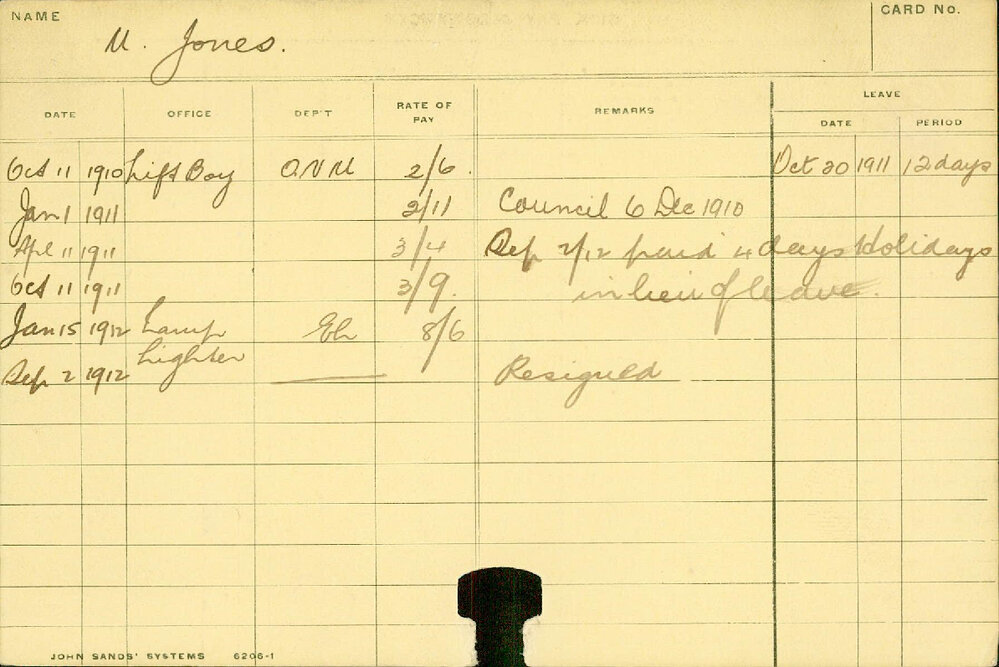 NAME
CARD No.
M. Jones.
LEAVE
DATE OFFICE DEP'T RATE OF PAY REMARKS DATE PERIOD
Oct 11 1910 Lift Boy Q.V.M 2/6. Oct 30 1911 12 days
Jan 1 1911 2/11 Council 6 Dec 1910
Apl 11 1911 3/4 Sep 2/12 paid 4 days Holidays
Oct 11 1911 3/9. in lieu of leave.
Jan 15 1912 Lamp EL 8/6
Lighter
Sep 2 1912 Resigned
JOHN SANDS' SYSTEMS 6206-1